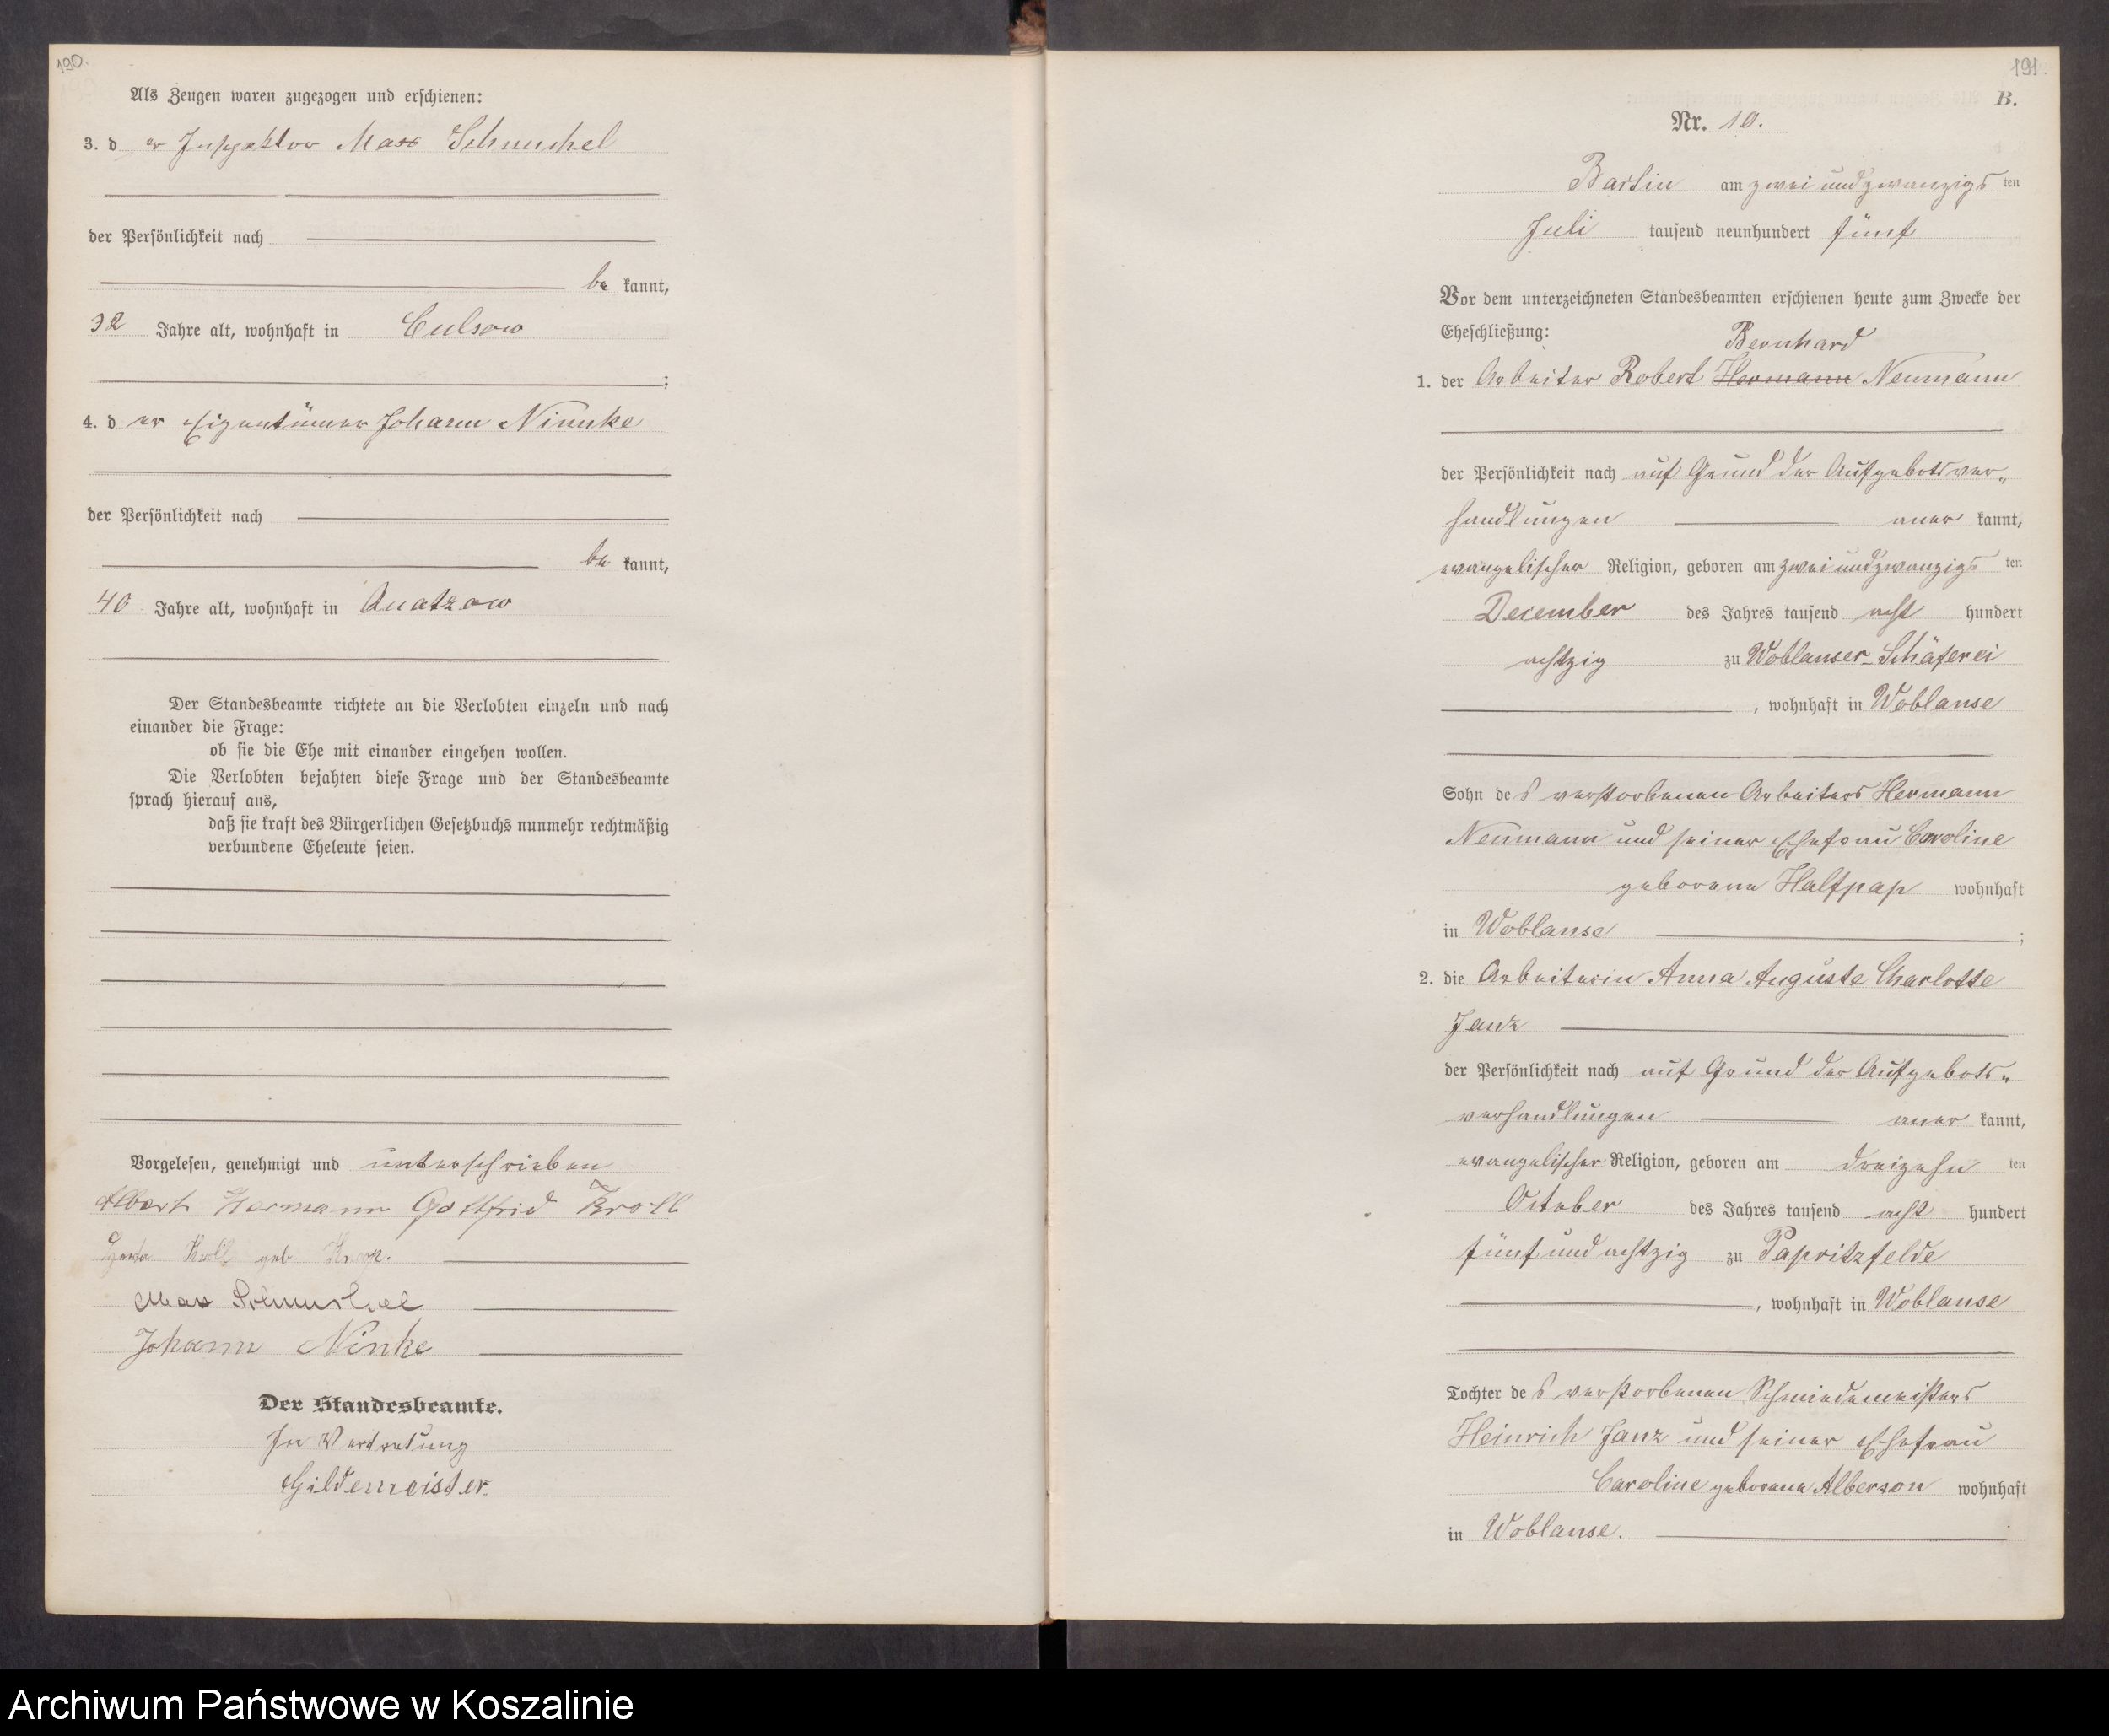 190.
Als Zeugen waren zugezogen und erschienen:
3. d er Inspektor Max Schmuchel
der Persönlichkeit nach
be kannt,
32 Jahre alt, wohnhaft in Culsow
;
4. d er Eigentümer Johann Nimke
der Persönlichkeit nach
be kannt,
40 Jahre alt, wohnhaft in Quatzow
Der Standesbeamte richtete an die Verlobten einzeln und nach
einander die Frage:
ob sie die Ehe mit einander eingehen wollen.
Die Verlobten bejahten diese Frage und der Standesbeamte
sprach hierauf aus,
daß sie kraft des Bürgerlichen Gesetzbuchs nunmehr rechtmäßig
verbundene Eheleute seien.
Vorgelesen, genehmigt und unterschrieben
Albert Hermann Gottfrid Kroll
Kroll geb.
Max Schmuchel
Johann Ninke
Der Standesbeamte.
In Vertretung
Gildemeister.
191.
B.
Nr. 10.
Bartin am zwei und zwanzigs ten
Juli tausend neunhundert fünf
Vor dem unterzeichneten Standesbeamten erschienen heute zum Zwecke der
Eheschließung:
Bernhard
1. der Arbeiter Robert Hermann Neumann
der Persönlichkeit nach auf Grund der Aufgebotsver„
handlungen aner kannt,
evangelischer Religion, geboren am zwei und zwanzigs ten
December des Jahres tausend acht hundert
achtzig zu Woblanser-Schäferei
, wohnhaft in Woblanse
Sohn de s verstorbenen Arbeiters Hermann
Neumann und seiner Ehefrau Caroline
geborene Halfpap wohnhaft
in Woblanse ;
2. die Arbeiterin Anna Auguste Charlotte
Janz
der Persönlichkeit nach auf Grund der Aufgebots„
verhandlungen aner kannt,
evangelischer Religion, geboren am dreizehn ten
October des Jahres tausend acht hundert
fünf und achtzig zu Papritzfelde
, wohnhaft in Woblanse
Tochter de s verstorbenen Schmiedemeisters
Heinrich Janz und seiner Ehefrau
Caroline geborene Alberson wohnhaft
in Woblanse.
Archiwum Państwowe w Koszalinie